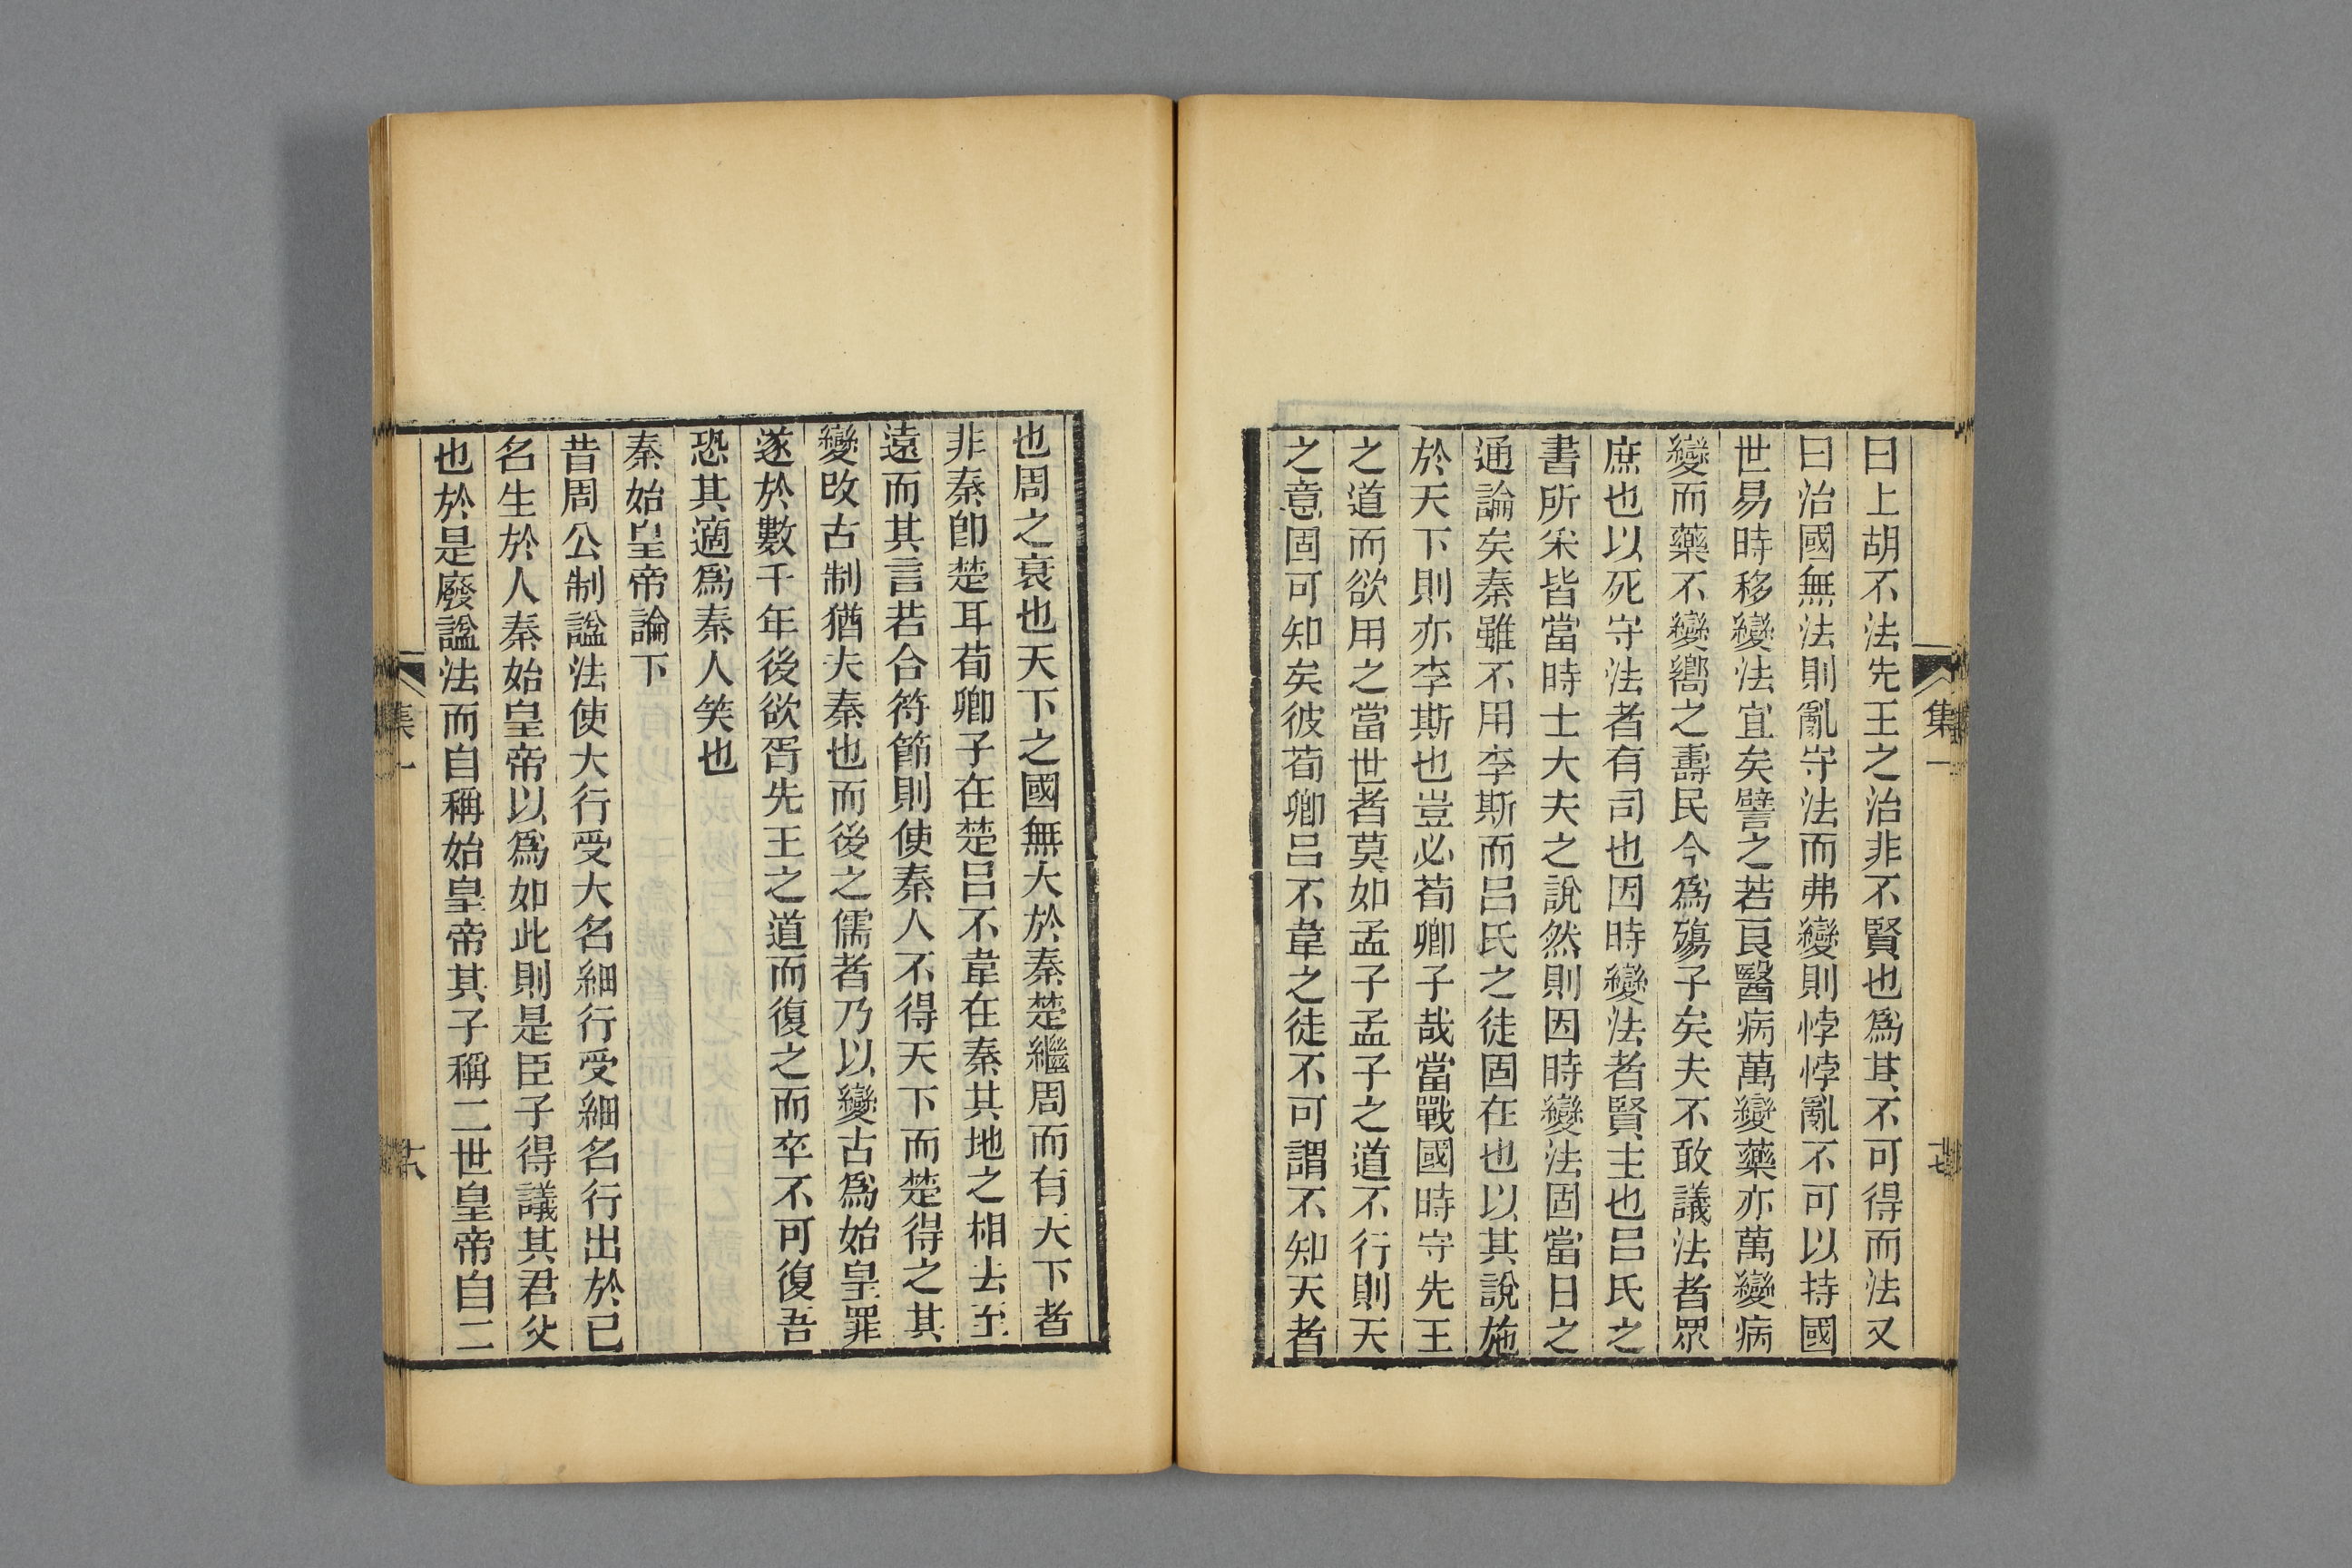 曰上胡不法先王之治非不賢也爲其不可得而法又
曰治國無法則亂守法而弗變則悖悖亂不可以持國
世易時移變法宜矣譬之若良醫病萬變藥亦萬變病
變而藥不變嚮之壽民今爲殤子矣夫不敢議法者眾
庶也以死守法者有司也因時變法者賢主也呂氏之
書所采皆當時士大夫之說然則因時變法固當日之
通論矣秦雖不用李斯而呂氏之徒固在也以其說施
於天下則亦李斯也豈必荀卿子哉當戰國時守先王
之道而欲用之當世者莫如孟子孟子之道不行則天
之意固可知矣彼荀卿呂不韋之徒不可謂不知天者
集一
也周之衰也天下之國無大於秦楚繼周而有天下者
非秦卽楚耳荀卿子在楚呂不韋在秦其地之相去至
遠而其言若合符節則使秦人不得天下而楚得之其
變改古制猶夫秦也而後之儒者乃以變古爲始皇罪
遂於數千年後欲胥先王之道而復之而卒不可復吾
恐其適爲秦人笑也
秦始皇帝論下
昔周公制諡法使大行受大名細行受細名行出於己
名生於人秦始皇帝以爲如此則是臣子得議其君父
也於是廢諡法而自稱始皇帝其子稱二世皇帝自二
集一